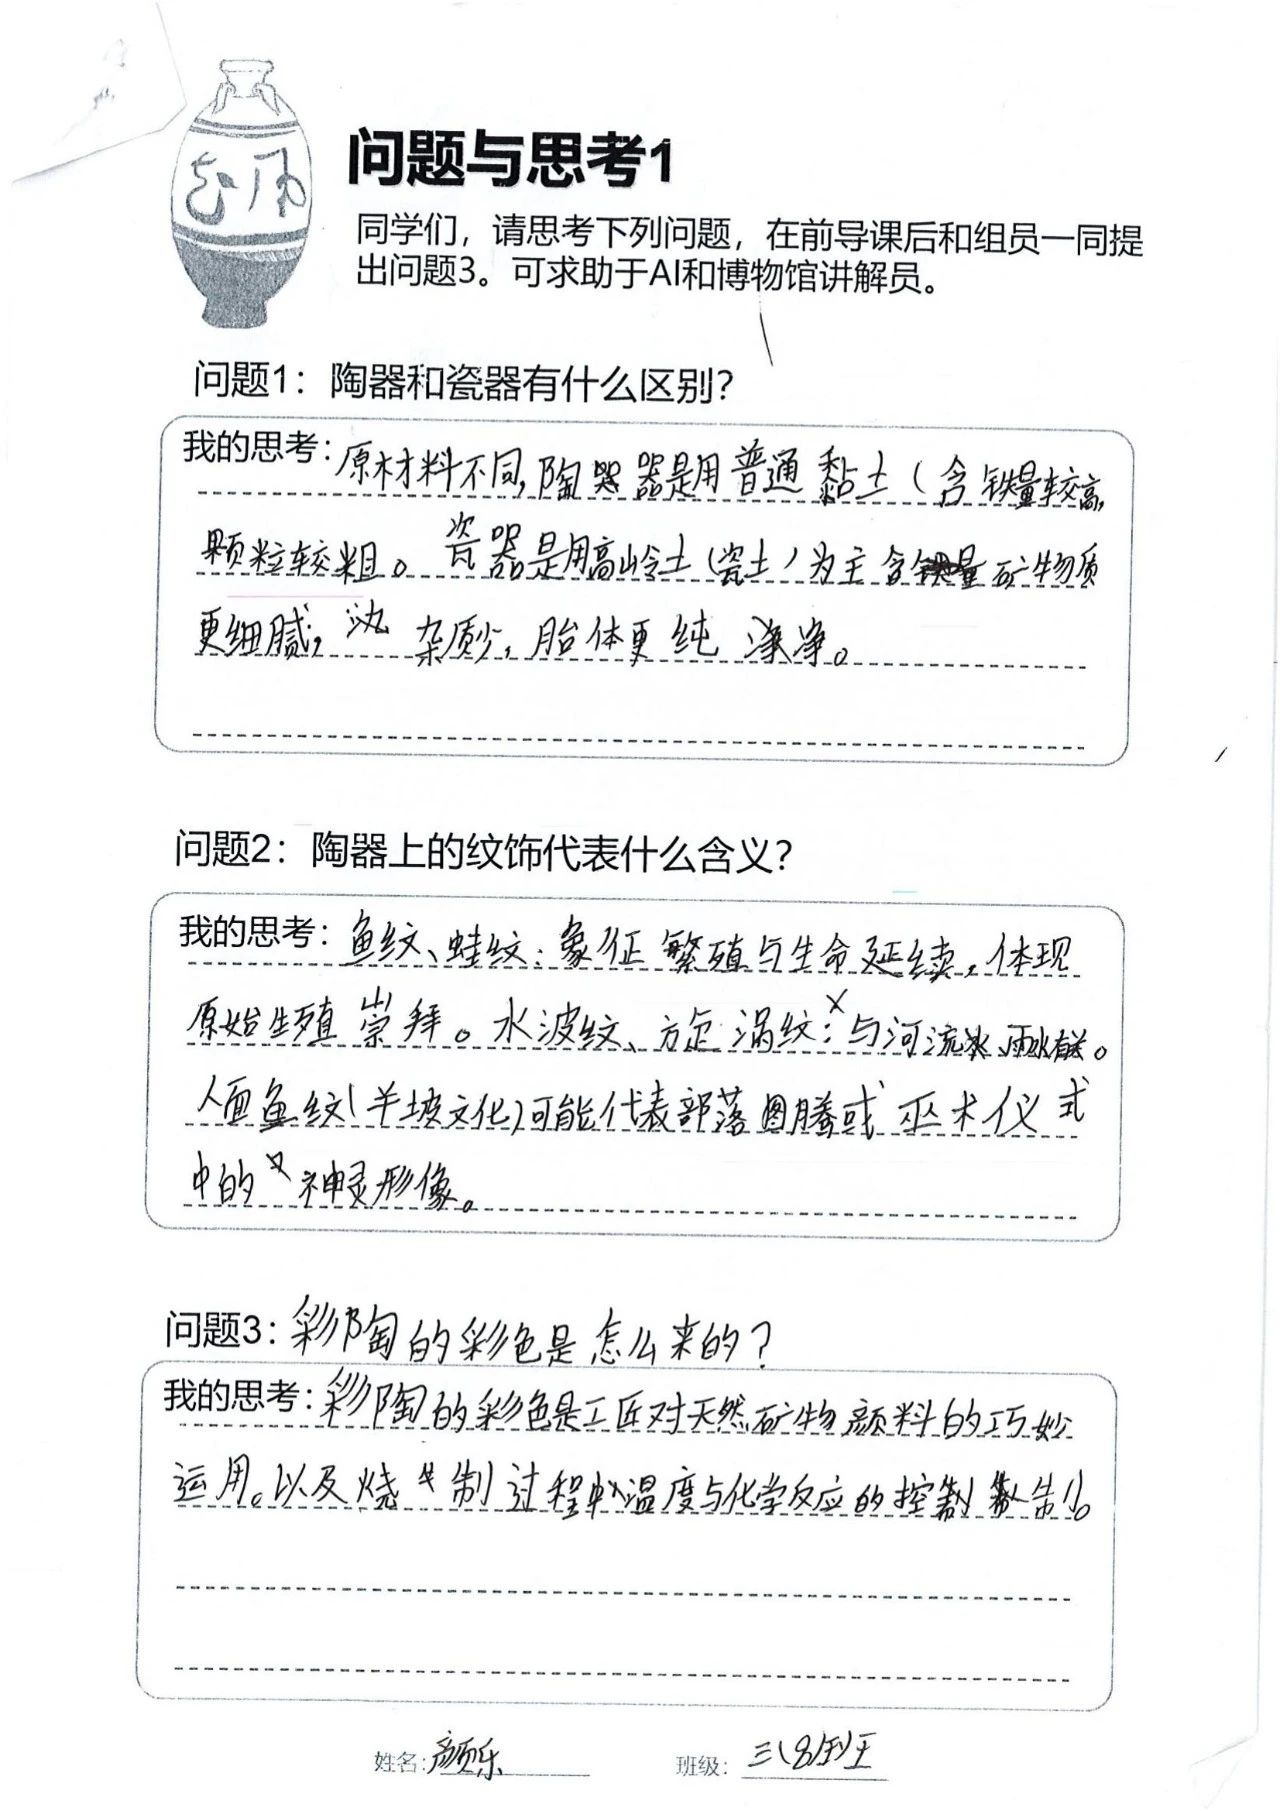 问题与思考1
同学们，请思考下列问题，在前导课后和组员一同提
出问题3。可求助于AI和博物馆讲解员。
问题1：陶器和瓷器有什么区别？
我的思考：原材料不同，陶器是用普通黏土（含铁量较高，
颗粒较粗。瓷器是用高岭土（瓷土）为主含量矿物质
更细腻，杂质少，胎体更纯净。
问题2：陶器上的纹饰代表什么含义？
我的思考：鱼纹、蛙纹：象征繁殖与生命延续，体现
原始生殖崇拜。水波纹、涡纹：与河流、雨水有关。
人面鱼纹（半坡文化）可能代表部落图腾或巫术仪式
中的神灵形像。
问题3：彩陶的彩色是怎么来的？
我的思考：彩陶的彩色是工匠对天然矿物颜料的巧妙
运用。以及烧制过程中温度与化学反应的控制。
姓名：颜乐 班级：三（8）班